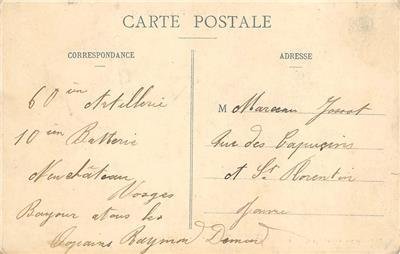 CARTE POSTALE
CORRESPONDANCE
ADRESSE
60 ièm Artillerie
10 ièm Batterie
Neuchâteau
Vosges
Bonjour a tous les
Copains Raymond
M Marceau Jossot
Rue des Capucins
A St Florentin
Yonne